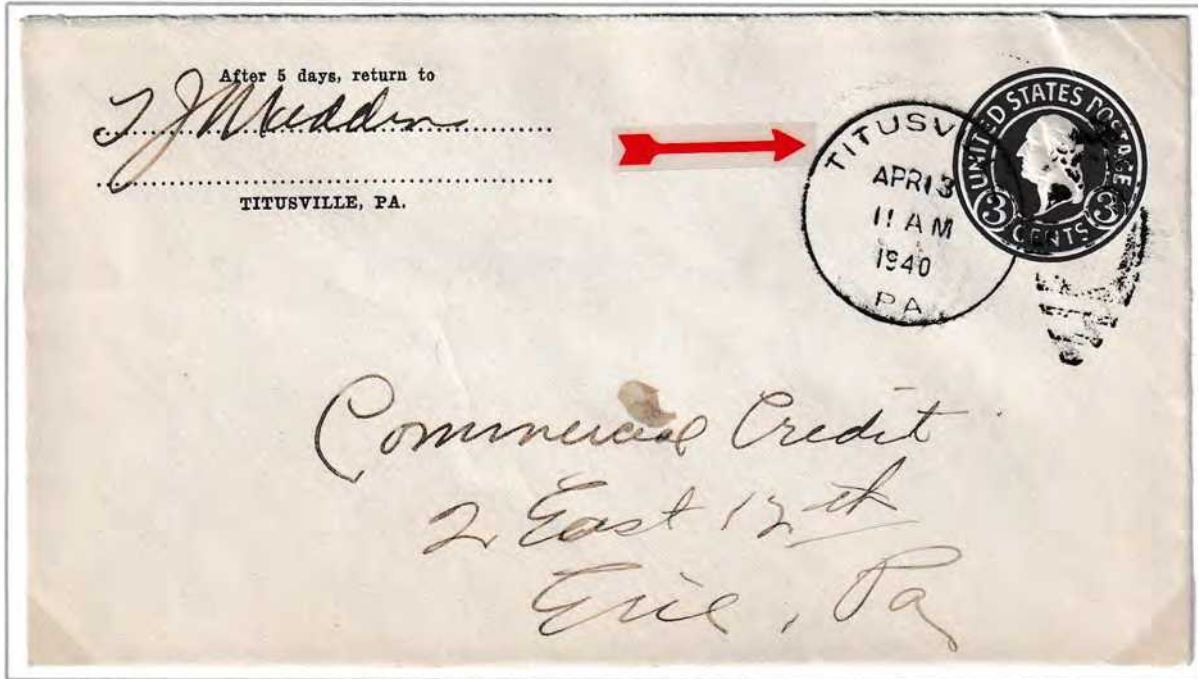 After 5 days, return to
T J Madden
TITUSVILLE, PA.
TITUSV
APR 13
11 AM
1940
PA
UNITED STATES POSTAGE
3 CENTS 3
Commercial Credit
2 East 12th
Erie, Pa